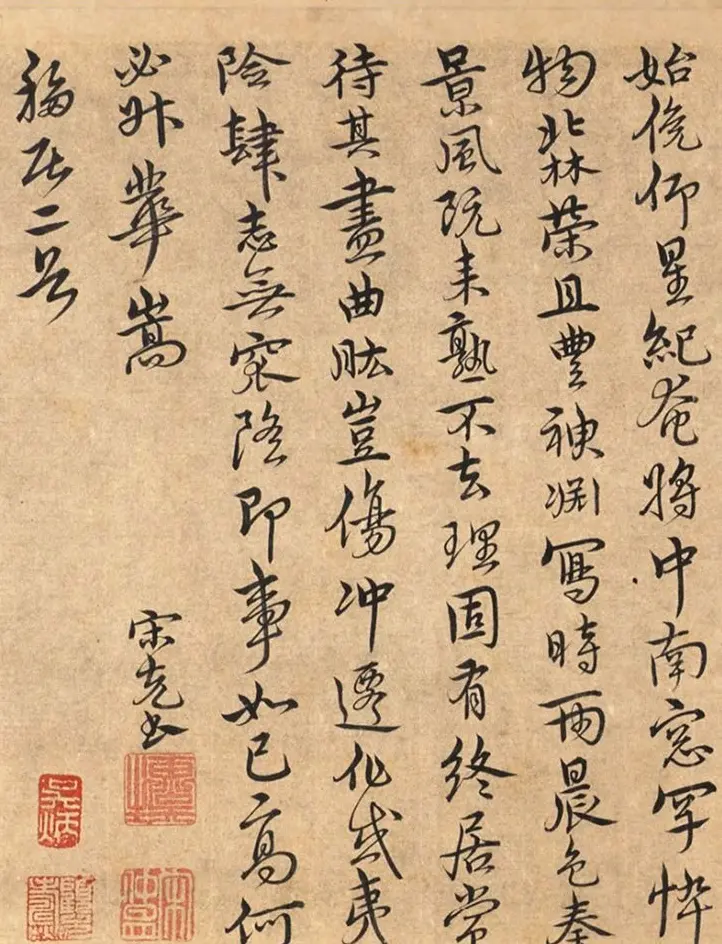 始俛仰星紀奄將中南窓罕悴
物北林榮且豐神渊寫時雨晨色奏
景風既来熟不去理固有終居常
待其盡曲肱豈傷冲遷化或夷
險肆志無窊隆即事如已高何
必升華嵩
宋克書
移居二首